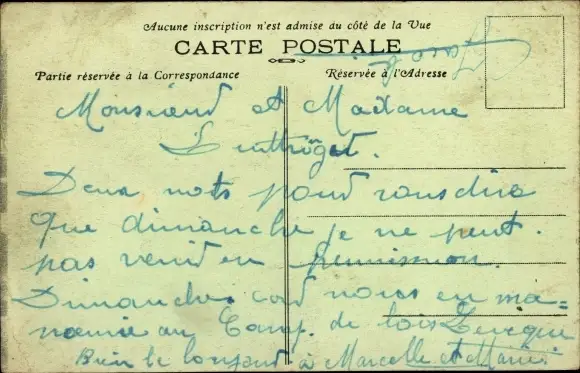 Aucune inscription n'est admise du côté de la Vue
CARTE POSTALE
Partie réservée à la Correspondance
Réservée à l'Adresse
Monsieur et Madame
Deux mots pour vous dire
que dimanche je ne peut
pas venir en permission.
Dimanche nous en ma-
au Camp de
Bien le bonjour à Marcelle et